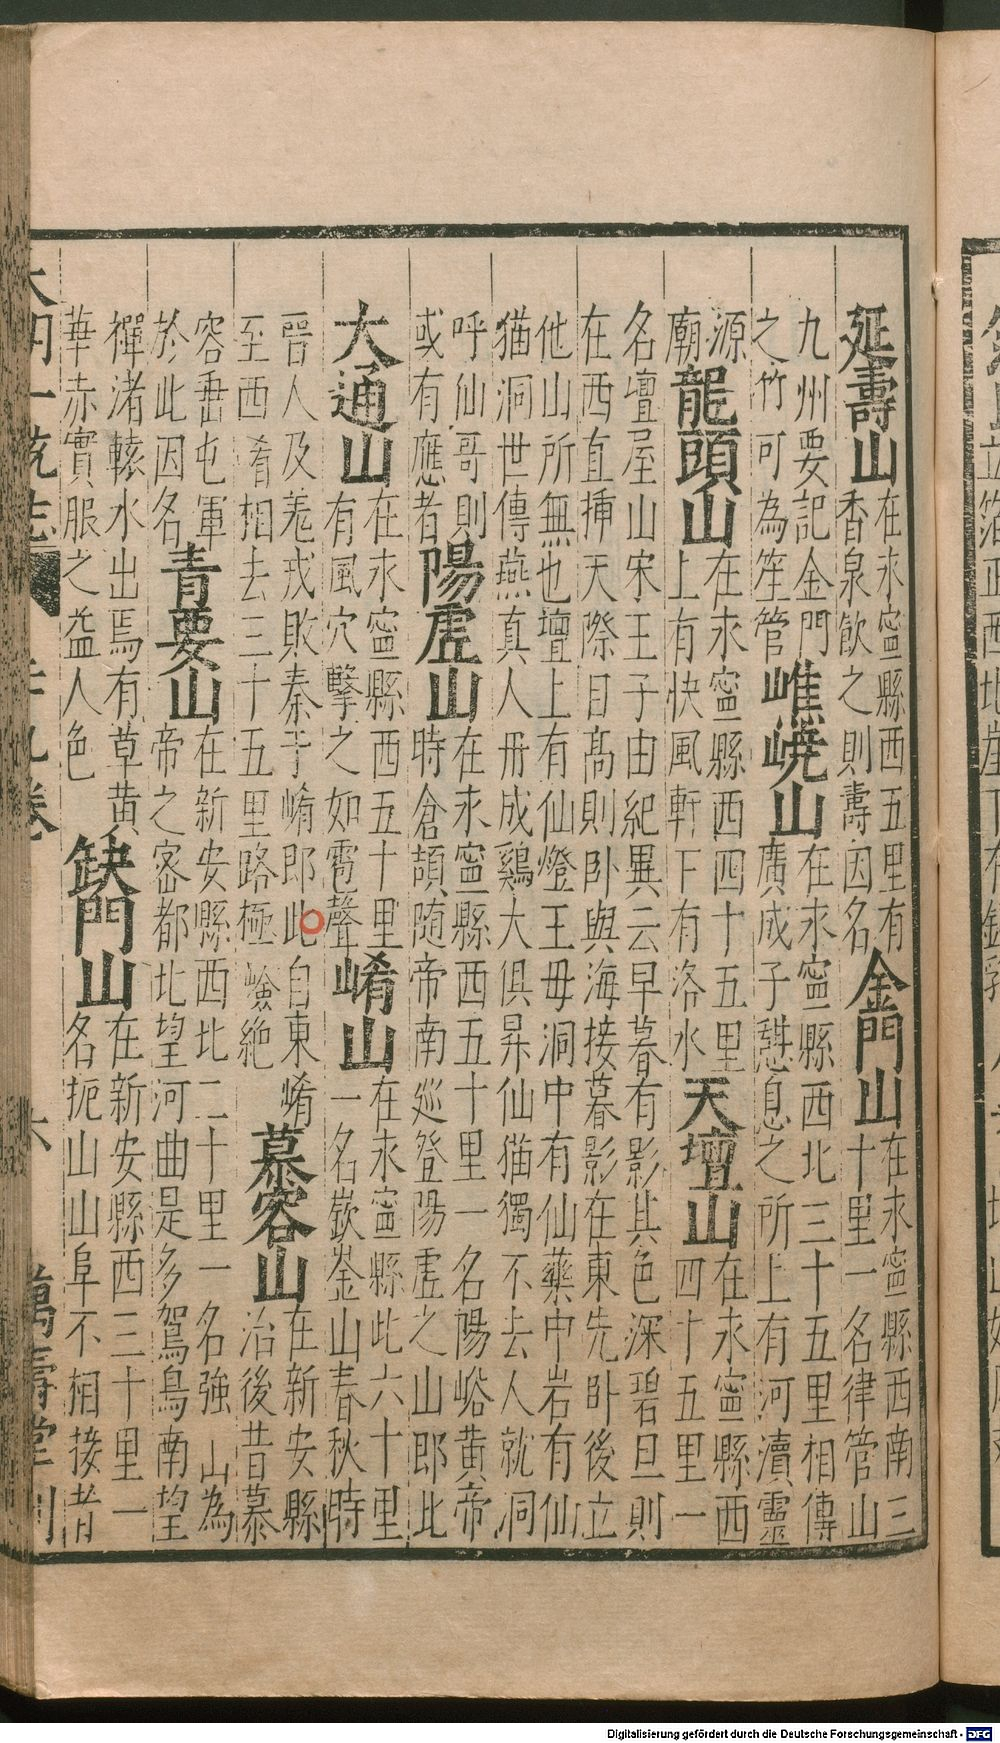 延壽山
在永寧縣西五里有
香泉飲之則壽因名
金門山
在永寧縣西南三
十里一名律管山
九州要記金門
之竹可為笙管
嶕嶢山
在永寧縣西北三十五里相傳
廣成子憇息之所上有河瀆靈
源
廟
龍頭山
在永寧縣西四十五里
上有快風軒下有洛水
天壇山
在永寧縣西
四十五里一
名壇屋山宋王子由紀異云早暮有影其色深碧旦則
在西直揷天際日高則卧與海接暮影在東先卧後立
他山所無也壇上有仙燈王母洞中有仙藥中岩有仙
猫洞世傳燕真人丹成鷄犬俱昇仙猫獨不去人就洞
呼仙哥則
或有應者
陽虛山
在永寧縣西五十里一名陽峪黄帝
時倉頡随帝南巡登陽虛之山即此
大通山
在永寧縣西五十里
有風穴擊之如雹聲
崤山
在永寧縣北六十里
一名嶔崟山春秋時
晉人及羌戎敗秦于崤即此自東崤
至西崤相去三十五里路極嶮絶
慕容山
在新安縣
治後昔慕
容垂屯軍
於此因名
青要山
在新安縣西北二十里一名強山為
帝之密都北望河曲是多駕鳥南望
禪渚轅水出焉有草黄
華赤實服之益人色
缺門山
在新安縣西三十里一
名扼山山阜不相接者
大明一統志 卷 六 萬壽堂刊
Digitalisierung gefördert durch die Deutsche Forschungsgemeinschaft - DFG